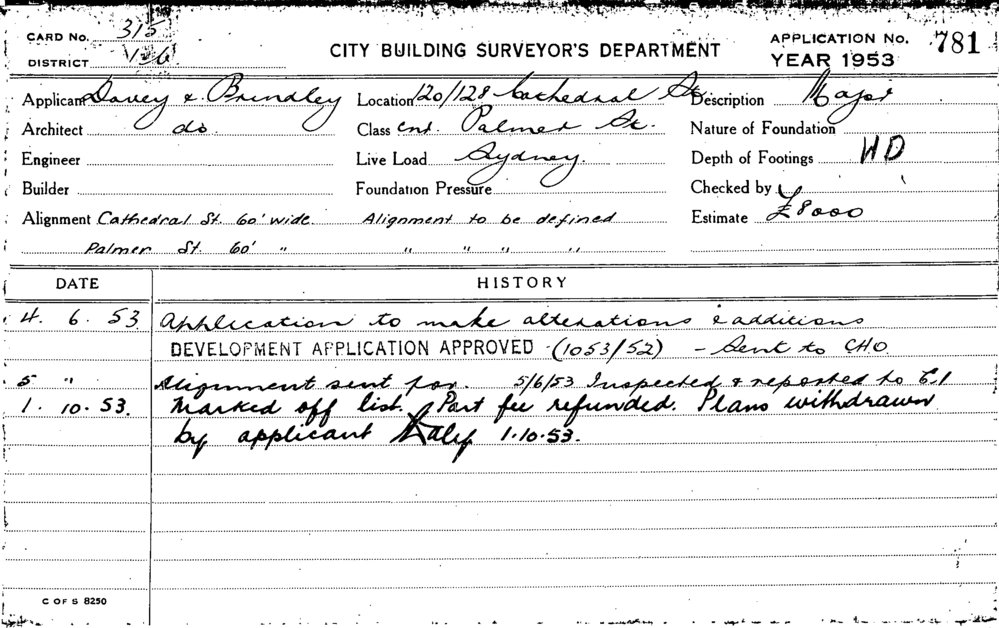 CARD No. 315
DISTRICT
CITY BUILDING SURVEYOR'S DEPARTMENT
APPLICATION No. 781
YEAR 1953
Applicant Davey & Brindley Location 120/128 Cathedral St. Description Major
Architect do. Class cnr. Palmer St. Nature of Foundation
Engineer Live Load Sydney. Depth of Footings HD
Builder Foundation Pressure Checked by
Alignment Cathedral St. 60' wide. Alignment to be defined Estimate £8000
Palmer St. 60' " " " " "
DATE HISTORY
4. 6. 53 Application to make alterations & additions
DEVELOPMENT APPLICATION APPROVED (1053/52) - Sent to CHO.
5 " Alignment sent for. 5/6/53 Inspected & reported to E.1
1. 10. 53. Marked off list. Part fee refunded. Plans withdrawn
by applicant 1.10.53.
C OF S 8250